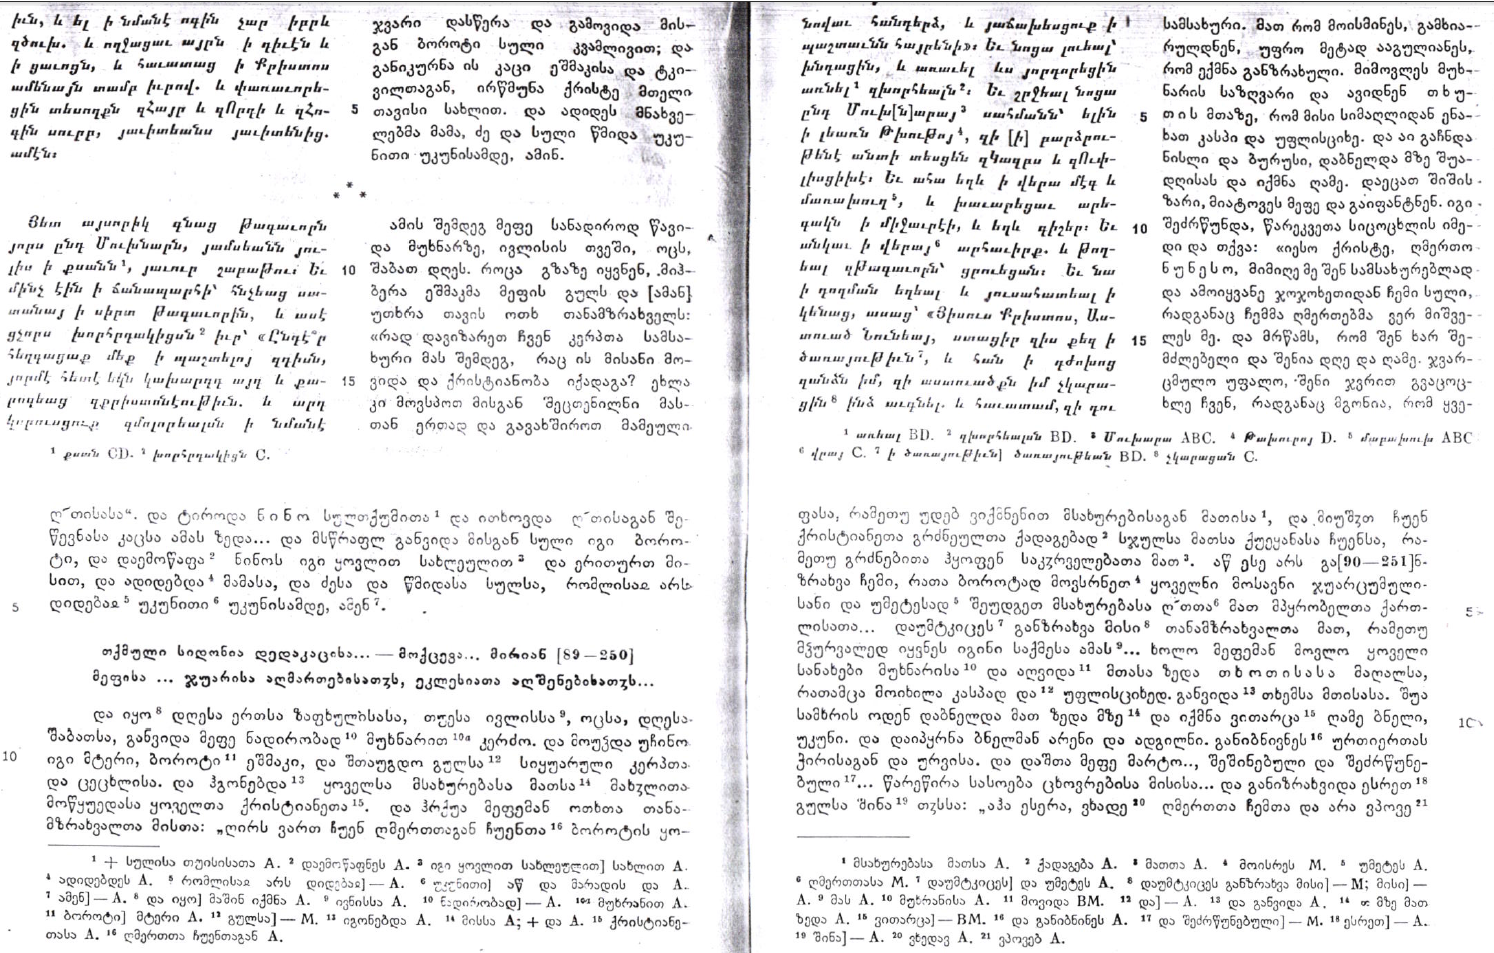 իւն, և ել ի նմանէ ոգին չար իբրև
զծուխ. և ողջացաւ այրն ի դիւէն և
ի ցաւոցն, և հաւատաց ի Քրիստոս
ամենայն տամբ իւրով. և փառաւորե-
ցին տեսողքն զՀայր և զՈրդի և զՀո-
գին սուրբ, յաւիտեանս յաւիտենից.
ամէն:
ჯვარი დასწერა და გამოვიდა მის-
გან ბოროტი სული კვამლივით; და
განიკურნა ის კაცი ეშმაკისა და ტკი-
ვილთაგან, ირწმუნა ქრისტე მთელი
5 თავისი სახლით. და ადიდეს მნახვე-
ლებმა მამა, ძე და სული წმიდა უკუ-
ნითი უკუნისამდე, ამინ.
* * *
Յետ այսորիկ գնաց թագաւորն
յորս ընդ Մուխնարն, յամսեանն յու-
լիս ի քսանն¹, յաւուր շաբաթու: Եւ
մինչ էին ի ճանապարհի՝ հնչեաց սա-
տանայ ի սիրտ թագաւորին, և ասէ
ցչորս խորհրդակիցսն² իւր՝ «Ընդէ՞ր
հեղգացաք մեք ի պաշտելոյ զդիսն,
յորմէ հետէ եկն կախարդդ այդ և քա-
րոզեաց զքրիստոնէութիւն. և արդ
կորուսցուք զմոլորեալսն ի նմանէ
ამის შემდეგ მეფე სანადიროდ წავი-
და მუხნარზე, ივლისის თვეში, ოცს,
10 შაბათ დღეს. როცა გზაზე იყვნენ, მიჰ-
ბერა ეშმაკმა მეფის გულს და [ამან]
უთხრა თავის ოთხ თანამზრახველს:
«რად დავიზარეთ ჩვენ კერპთა სამსა-
ხური მას შემდეგ, რაც ის მისანი მო-
15 ვიდა და ქრისტიანობა იქადაგა? ეხლა
კი მოვსპოთ მისგან შეცთენილნი მას-
თან ერთად და გავახშიროთ მამეული
¹ քսան CD. ² խորհրդակիցն C.
ღ˜თისასა“. და ტიროდა ნინო სულთქუმითა¹ და ითხოვდა ღ˜თისაგან შე-
წევნასა კაცსა ამას ზედა... და მსწრაფლ განვიდა მისგან სული იგი ბორო-
ტი, და დაემოწაფა² ნინოს იგი ყოვლით სახლეულით³ და ერითურთ მი-
სით, და ადიდებდა⁴ მამასა, და ძესა და წმიდასა სულსა, რომლისაჲ არს
5 დიდებაჲ⁵ უკუნითი⁶ უკუნისამდე, ამენ⁷.
თქმული სიდონია დედაკაცისა... — მოქცევა... მირიან [89—250]
მეფისა ... ჯუარისა აღმართებისათჳს, ეკლესიათა აღშენებისათჳს...
და იყო⁸ დღესა ერთსა ზაფხულისასა, თუესა ივლისსა⁹, ოცსა, დღესა
შაბათსა, განვიდა მეფე ნადირობად¹⁰ მუხნარით¹⁰ᵃ კერძო. და მოუჴდა უჩინო
10 იგი მტერი, ბოროტი¹¹ ეშმაკი, და შთაუგდო გულსა¹² სიყუარული კერპთა
და ცეცხლისა. და ჰგონებდა¹³ ყოველსა მსახურებასა მათსა¹⁴ მახჳლითა
მოწყუედასა ყოველთა ქრისტიანეთა¹⁵. და ჰრქუა მეფემან ოთხთა თანა-
მზრახვალთა მისთა: „ღირს ვართ ჩუენ ღმერთთაგან ჩუენთა¹⁶ ბოროტის ყო-
¹ + სულისა თუისისათა A. ² დაემოწაფნეს A. ³ იგი ყოვლით სახლეულით] სახლით A.
⁴ ადიდებდეს A. ⁵ რომლისაჲ არს დიდებაჲ] — A. ⁶ უკუნითი] აწ და მარადის და A.
⁷ ამენ] — A. ⁸ და იყო] მაშინ იქმნა A. ⁹ ივნისსა A. ¹⁰ ნადირობად] — A. ¹⁰ᵃ მუხრანით A.
¹¹ ბოროტი] მტერი A. ¹² გულსა] — M. ¹³ იგონებდა A. ¹⁴ მისსა A; + და A. ¹⁵ ქრისტიანე-
თასა A. ¹⁶ ღმერთთა ჩუენთაგან A.
նովաւ հանդերձ, և յաճախեսցուք ի
պաշտաւնն հայրենի»: Եւ նոցա լուեալ՝
խնդացին, և առաւել ևս յորդորեցին
առնել¹ զխորհեալն²: Եւ շրջեալ նոցա
ընդ Մուխ[ն]արայ³ սահմանն՝ ելին
ի լեառն Թխութոյ⁴, զի [ի] բարձրու-
թենէ անտի տեսցեն զԿասբս և զՈւփ-
լիսցիխէ: Եւ ահա եղև ի վերա մէգ և
մառախուղ⁵, և խաւարեցաւ արե-
գակն ի միջաւրէի, և եղև գիշեր: Եւ
անկաւ ի վերայ⁶ արհաւիրք. և թող-
եալ զթագաւորն՝ ցրուեցան: Եւ նա
ի դողման եղեալ և յուսահատեալ ի
կենաց, ասաց՝ «Յիսուս Քրիստոս, Աս-
տուած Նունեայ, ստացիր զիս քեզ ի
ծառայութիւն⁷, և հան ի դժոխոց
զանձն իմ, զի աստուածքն իմ չկարա-
ցին⁸ ինձ աւգնել. և հաւատամ, զի դու
სამსახური. მათ რომ მოისმინეს, გამხია-
რულდნენ, უფრო მეტად ააგულიანეს,
რომ ექმნა განზრახული. მიმოვლეს მუხ-
ნარის საზღვარი და ავიდნენ თხუ-
5 თის მთაზე, რომ მისი სიმაღლიდან ენა-
ხათ კასპი და უფლისციხე. და აი გაჩნდა
ნისლი და ბურუსი, დაბნელდა მზე შუა-
დღისას და იქმნა ღამე. დაეცათ შიშის
ზარი, მიატოვეს მეფე და გაიფანტნენ. იგი
10 შეძრწუნდა, წარეკვეთა სიცოცხლის იმე-
დი და თქვა: «იესო ქრისტე, ღმერთო
ნუნესო, მიმიღე მე შენ სამსახურებლად
და ამოიყვანე ჯოჯოხეთიდან ჩემი სული,
რადგანაც ჩემმა ღმერთებმა ვერ მიშვე-
15 ლეს მე. და მრწამს, რომ შენ ხარ შე-
მძლებელი და შენია დღე და ღამე. ჯვარ-
ცმულო უფალო, შენი ჯვრით გვაცოც-
ხლე ჩვენ, რადგანაც მგონია, რომ ყვე-
¹ առեալ BD. ² զխորհեալսն BD. ³ Մուխարա ABC. ⁴ Թախուրոյ D. ⁵ մարախուխ ABC
⁶ վրայ C. ⁷ ի ծառայութիւն] ծառայութեան BD. ⁸ չկարացան C.
ფასა, რამეთუ უდებ ვიქმნენით მსახურებისაგან მათისა¹, და მიუშჳთ ჩუენ
ქრისტიანეთა გრძნეულთა ქადაგებად² სჯულსა მათსა ქუეყანასა ჩუენსა, რა-
მეთუ გრძნებითა ჰყოფენ საკჳრველებათა მათ³. აწ ესე არს გა[90—251]ნ-
ზრახვა ჩემი, რათა ბოროტად მოვსრნეთ⁴ ყოველნი მოსავნი ჯუარცუმული-
5 სანი და უმეტესად⁵ შეუდგეთ მსახურებასა ღ˜თთა⁶ მათ მპყრობელთა ქართ-
ლისათა... დაუმტკიცეს⁷ განზრახვა მისი⁸ თანამზრახვალთა მათ, რამეთუ
მჴურვალედ იყვნეს იგინი საქმესა ამას⁹... ხოლო მეფემან მოვლო ყოველი
სანახები მუხნარისა¹⁰ და აღვიდა¹¹ მთასა ზედა თხოთისასა მაღალსა,
რათამცა მოიხილა კასპად და¹² უფლისციხედ. განვიდა¹³ თხემსა მთისასა. შუა
10 სამხრის ოდენ დაბნელდა მათ ზედა მზე¹⁴ და იქმნა ვითარცა¹⁵ ღამე ბნელი,
უკუნი. და დაიპყრნა ბნელმან არენი და ადგილნი. განიბნივნეს¹⁶ ურთიერთას
ჭირისაგან და ურვისა. და დაშთა მეფე მარტო.., შეშინებული და შეძრწუნე-
ბული¹⁷... წარეწირა სასოება ცხოვრებისა მისისა... და განიზრახვიდა ესრეთ¹⁸
გულსა შინა¹⁹ თჳსსა: „აჰა ესერა, ვხადე²⁰ ღმერთთა ჩემთა და არა ვპოვე²¹
¹ მსახურებასა მათსა A. ² ქადაგება A. ³ მათთა A. ⁴ მოისრეს M. ⁵ უმეტეს A.
⁶ ღმერთთასა M. ⁷ დაუმტკიცეს] და უმეტეს A. ⁸ დაუმტკიცეს განზრახვა მისი] — M; მისი] —
A. ⁹ მას A. ¹⁰ მუხრანისა A. ¹¹ მოვიდა BM. ¹² და] — A. ¹³ და განვიდა A. ¹⁴ ∝ მზე მათ
ზედა A. ¹⁵ ვითარცა] — BM. ¹⁶ და განიბნინეს A. ¹⁷ და შეძრწუნებული] — M. ¹⁸ ესრეთ] — A.
¹⁹ შინა] — A. ²⁰ ვხედავ A. ²¹ ვპოვებ A.